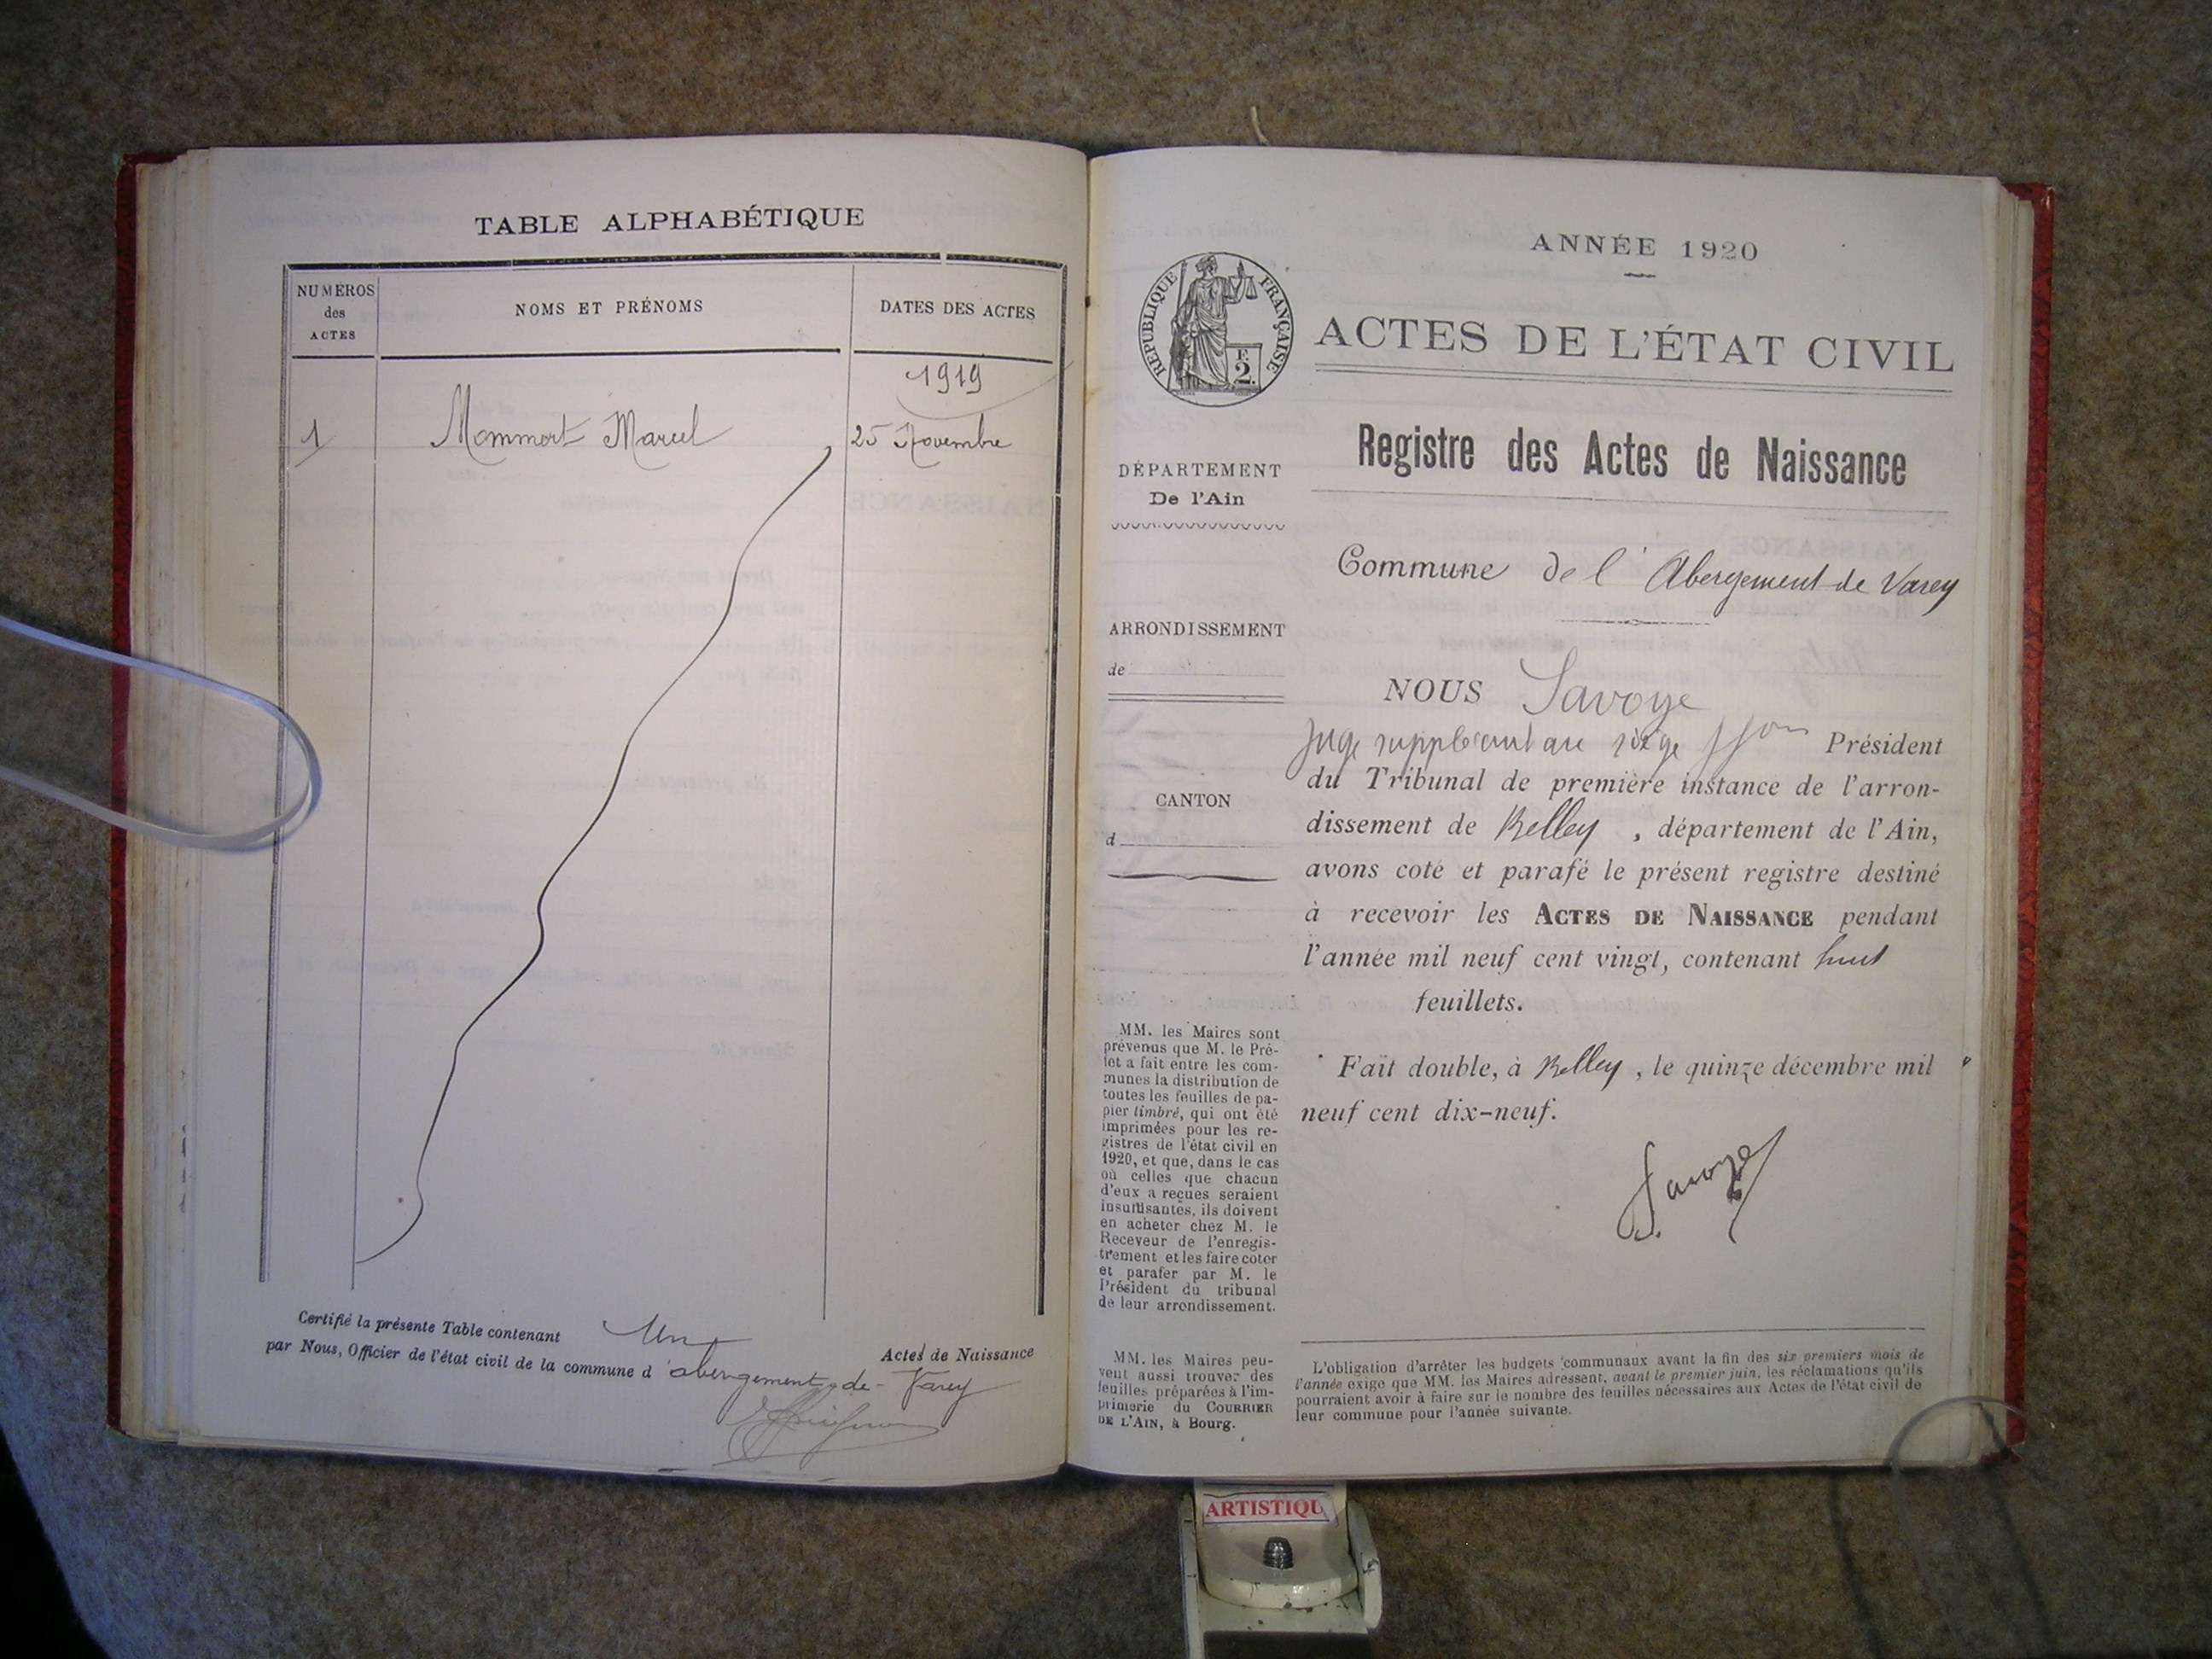 TABLE ALPHABÉTIQUE
NUMEROS
des
ACTES
NOMS ET PRÉNOMS
DATES DES ACTES
1919
1 Mommert Marcel 25 Novembre
Certifié la présente Table contenant Un Actes de Naissance
par Nous, Officier de l'état civil de la commune d'abergement-de-Varey
ANNÉE 1920
RÉPUBLIQUE FRANÇAISE
2.
ACTES DE L'ÉTAT CIVIL
Registre des Actes de Naissance
DÉPARTEMENT
De l'Ain
ARRONDISSEMENT
de
CANTON
d
MM. les Maires sont
prévenus que M. le Pré-
fet a fait entre les com-
munes la distribution de
toutes les feuilles de pa-
pier timbré, qui ont été
imprimées pour les re-
gistres de l'état civil en
1920, et que, dans le cas
où celles que chacun
d'eux a reçues seraient
insuffisantes, ils doivent
en acheter chez M. le
Receveur de l'enregis-
trement et les faire coter
et parafer par M. le
Président du tribunal
de leur arrondissement.
MM. les Maires peu-
vent aussi trouver des
feuilles préparées à l'im-
primerie du COURRIER
DE L'AIN, à Bourg.
Commune de l'Abergement de Varey
NOUS Savoye
Juge suppléant au siège Président
du Tribunal de première instance de l'arron-
dissement de Belley, département de l'Ain,
avons coté et parafé le présent registre destiné
à recevoir les ACTES DE NAISSANCE pendant
l'année mil neuf cent vingt, contenant huit
feuillets.
Fait double, à Belley, le quinze décembre mil
neuf cent dix-neuf.
Savoye
L'obligation d'arrêter les budgets communaux avant la fin des six premiers mois de
l'année exige que MM. les Maires adressent, avant le premier juin, les réclamations qu'ils
pourraient avoir à faire sur le nombre des feuilles nécessaires aux Actes de l'état civil de
leur commune pour l'année suivante.
ARTISTIQU